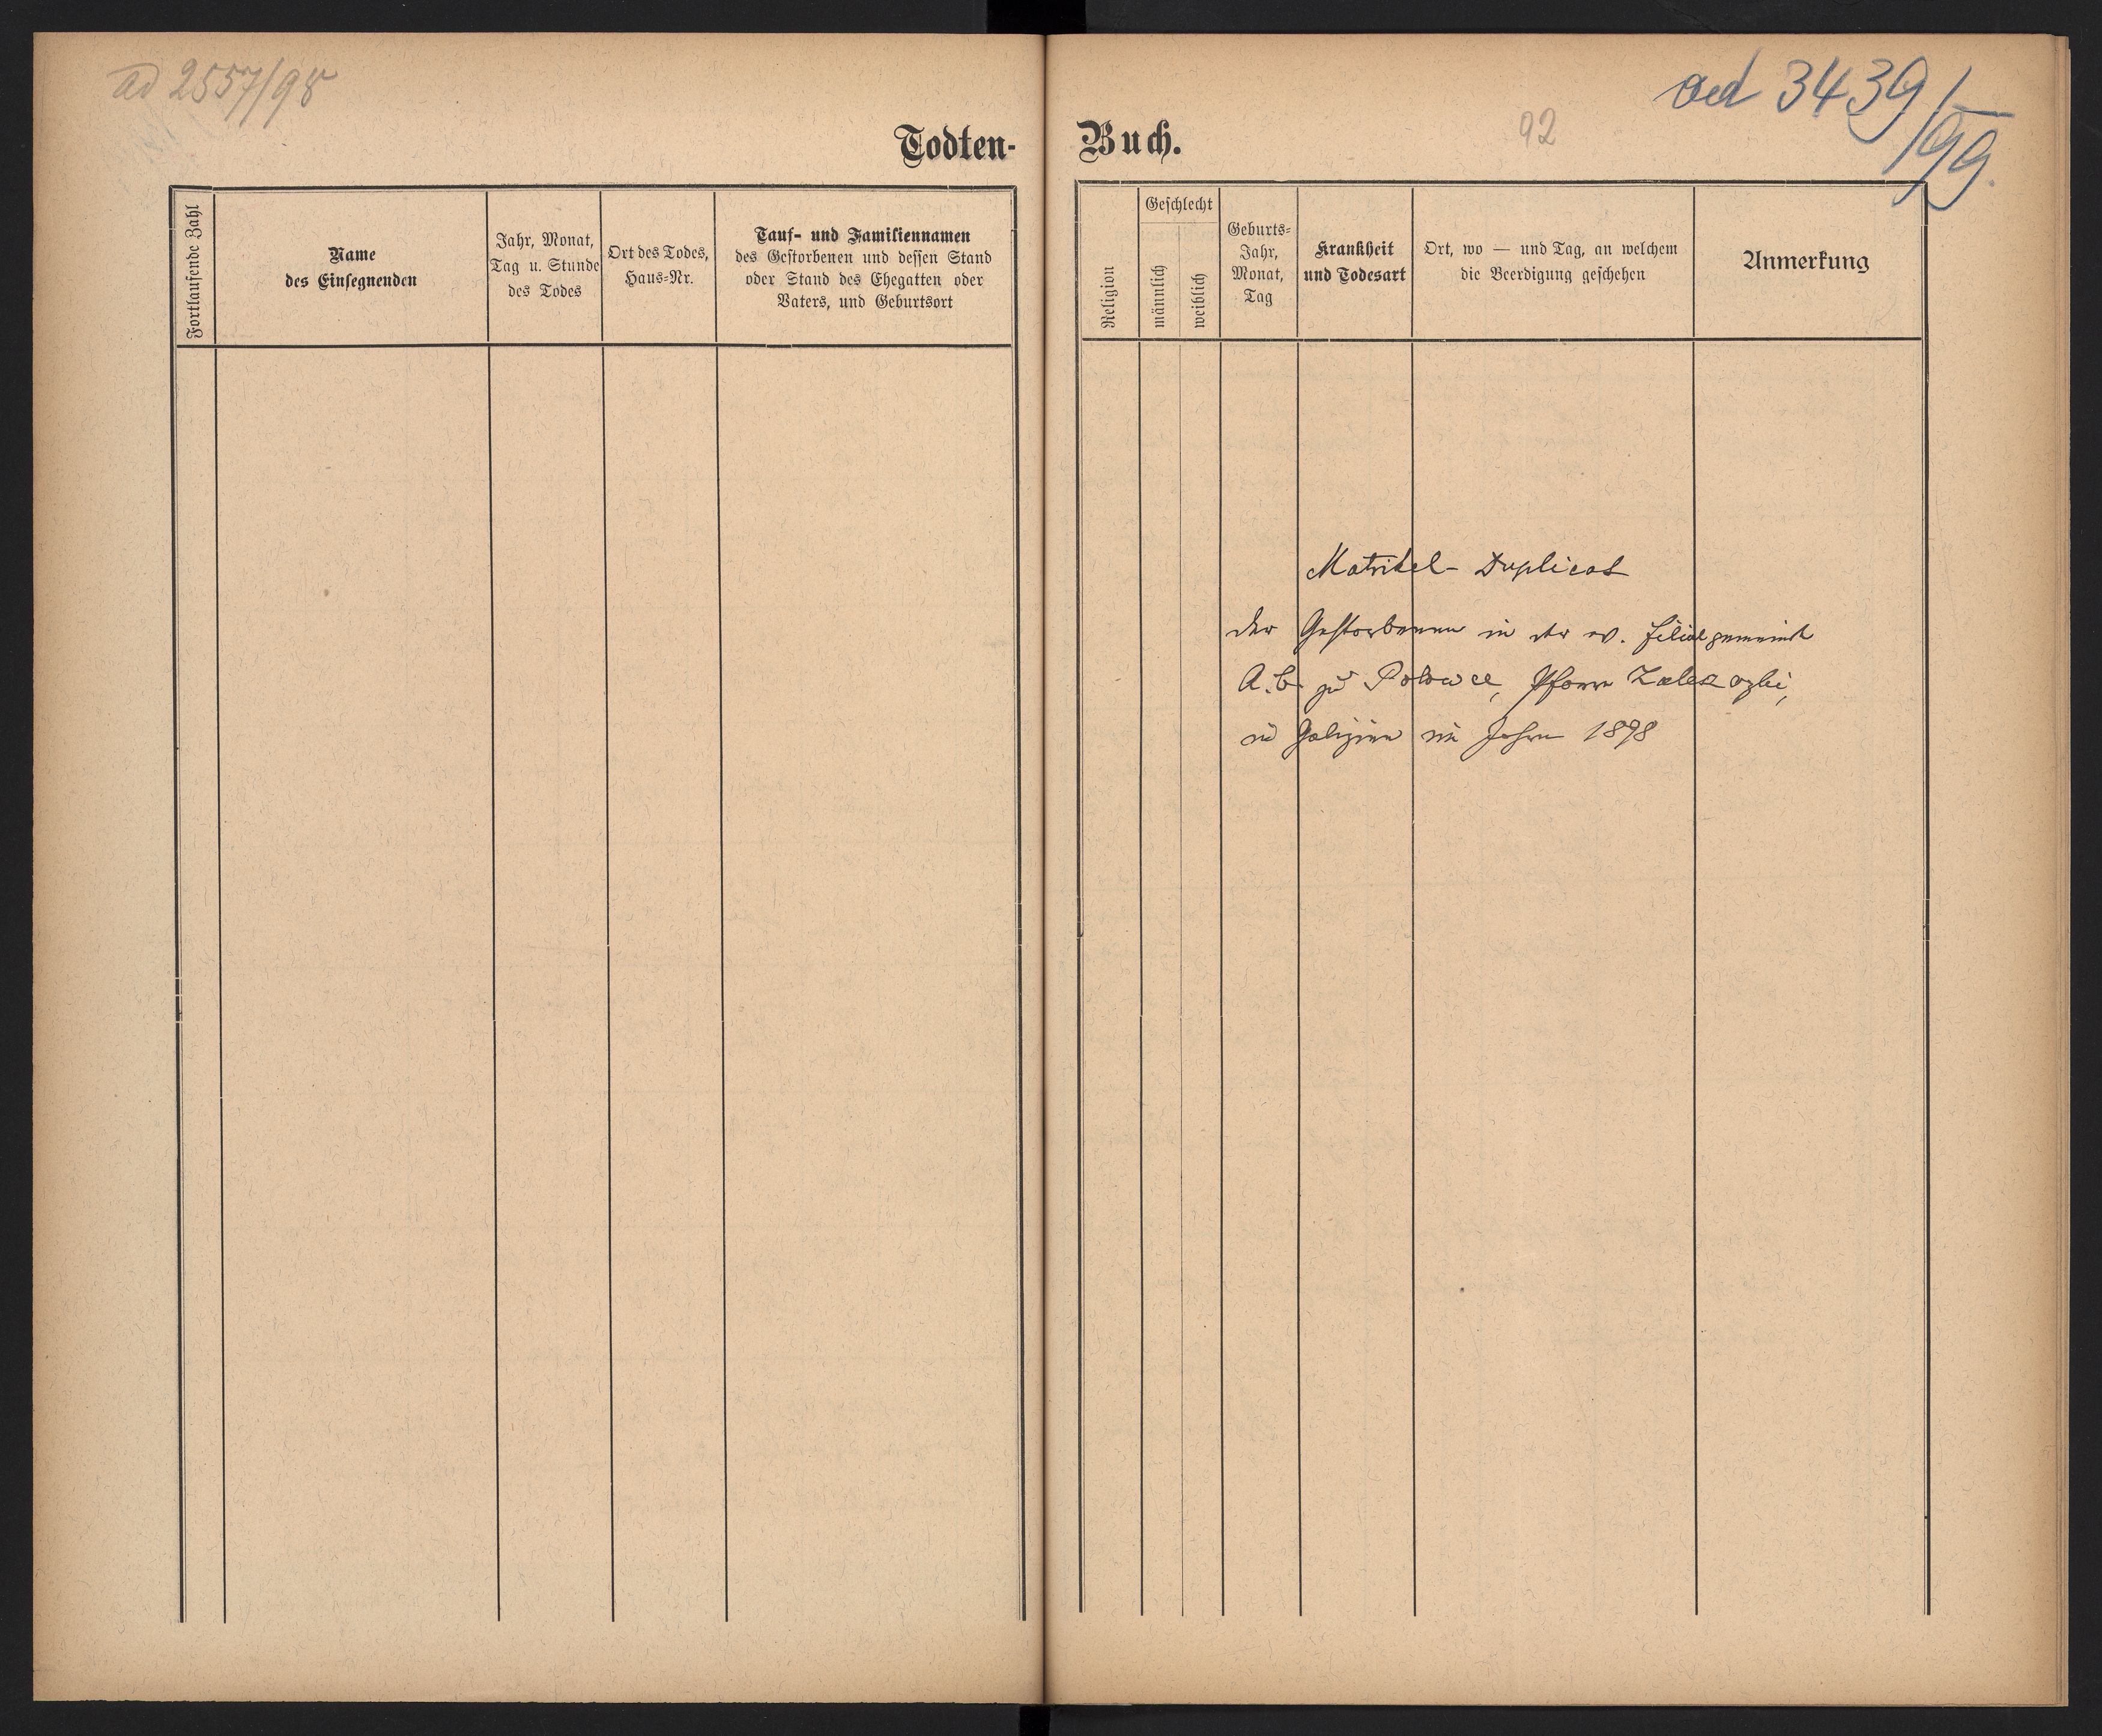 ad 2557/98
Todten-
Fortlaufende Zahl
Name
des Einsegnenden
Jahr, Monat,
Tag u. Stunde
des Todes
Ort des Todes,
Haus-Nr.
Tauf- und Familiennamen
des Gestorbenen und dessen Stand
oder Stand des Ehegatten oder
Vaters, und Geburtsort
ad 3439/99.
92
Buch.
Religion
Geschlecht
männlich
weiblich
Geburts-
Jahr,
Monat,
Tag
Krankheit
und Todesart
Ort, wo — und Tag, an welchem
die Beerdigung geschehen
Anmerkung
Matrikel-Duplicat
der Gestorbenen in der ev. Filialgemeinde
A. B. zu Polowce, Pfarre Zaleszczyki,
in Galizien im Jahre 1898